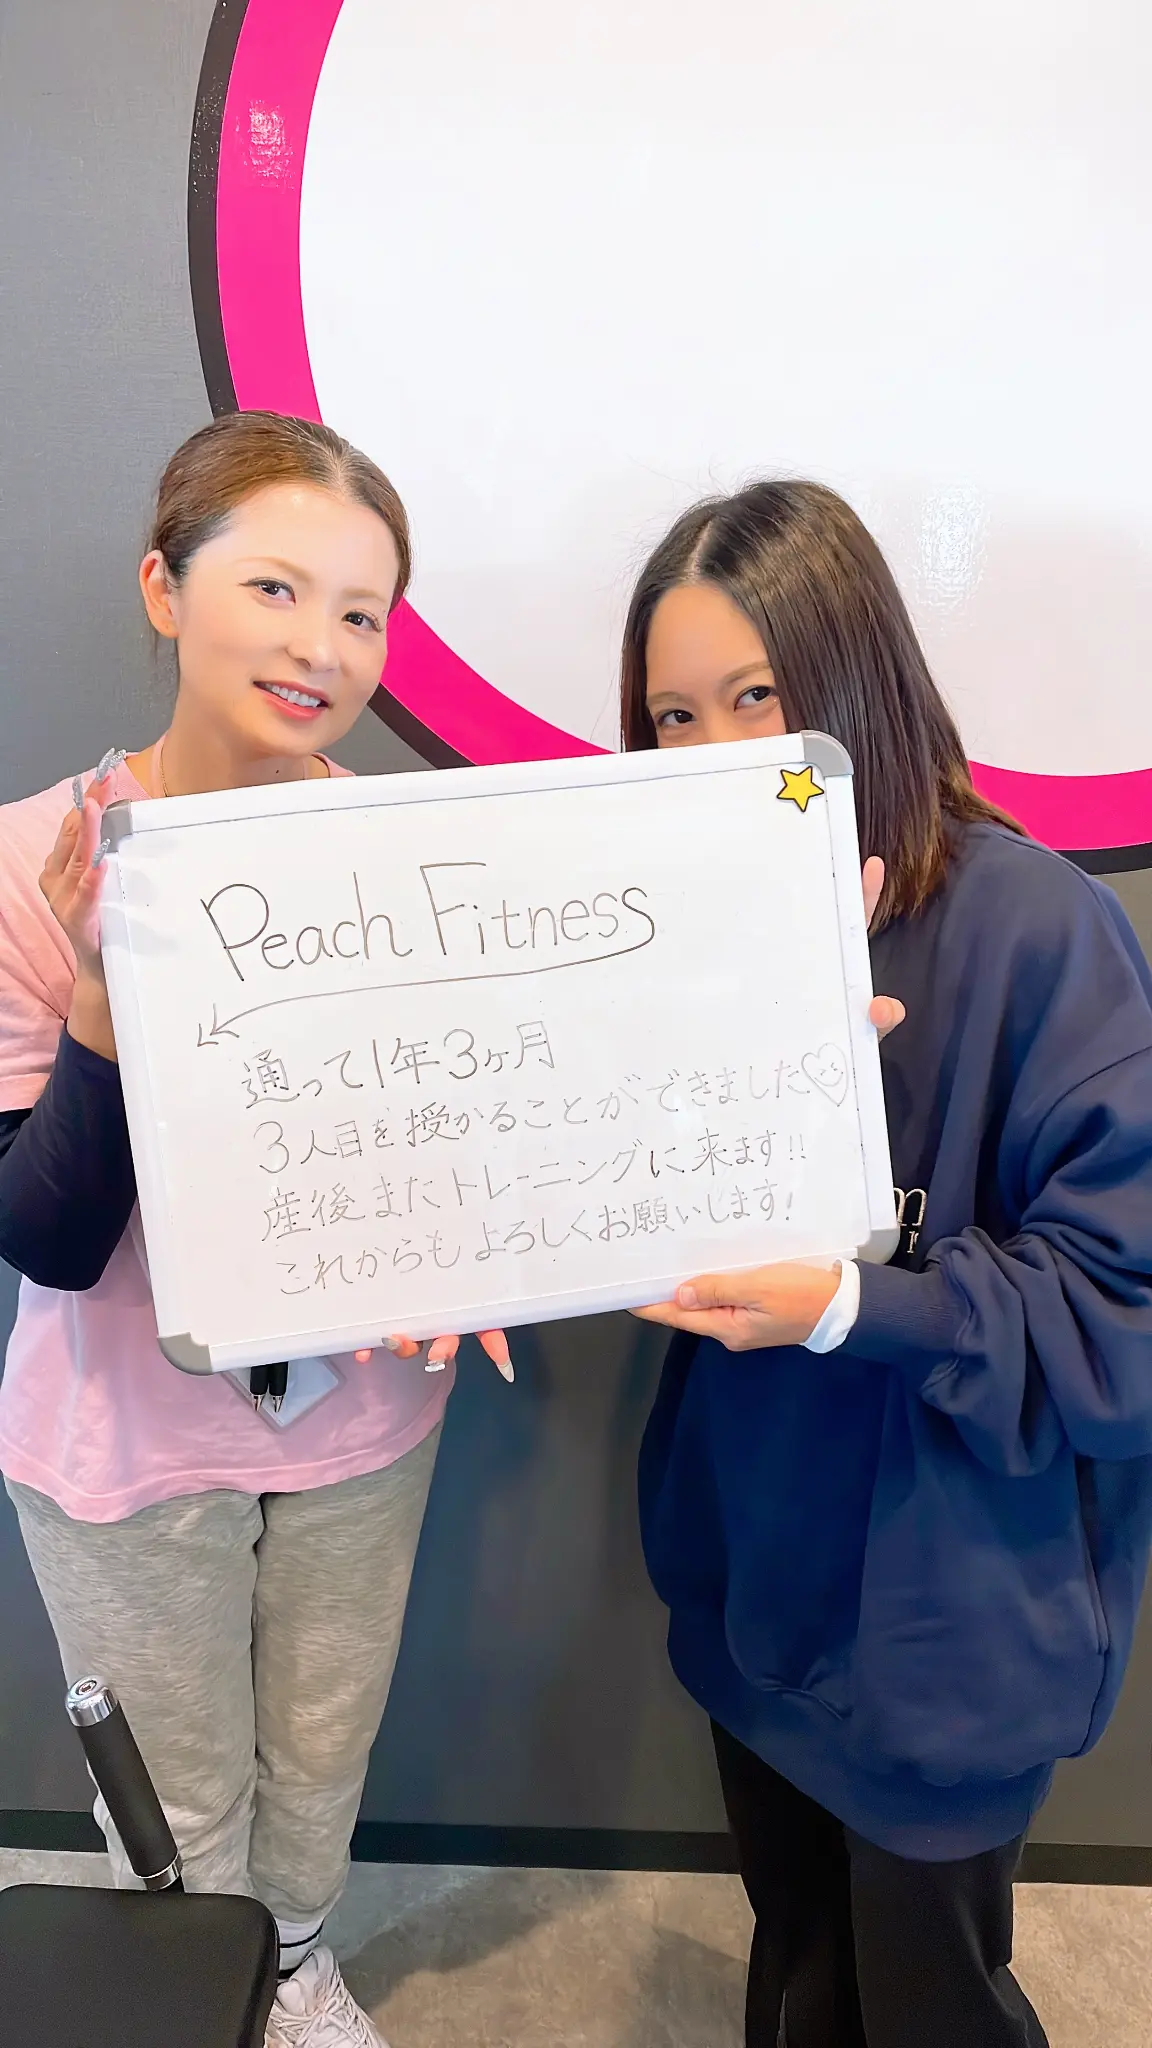 Peach Fitness
通って1年3ヶ月
3人目を授かることができました
産後またトレーニングに来ます!!
これからもよろしくお願いします!